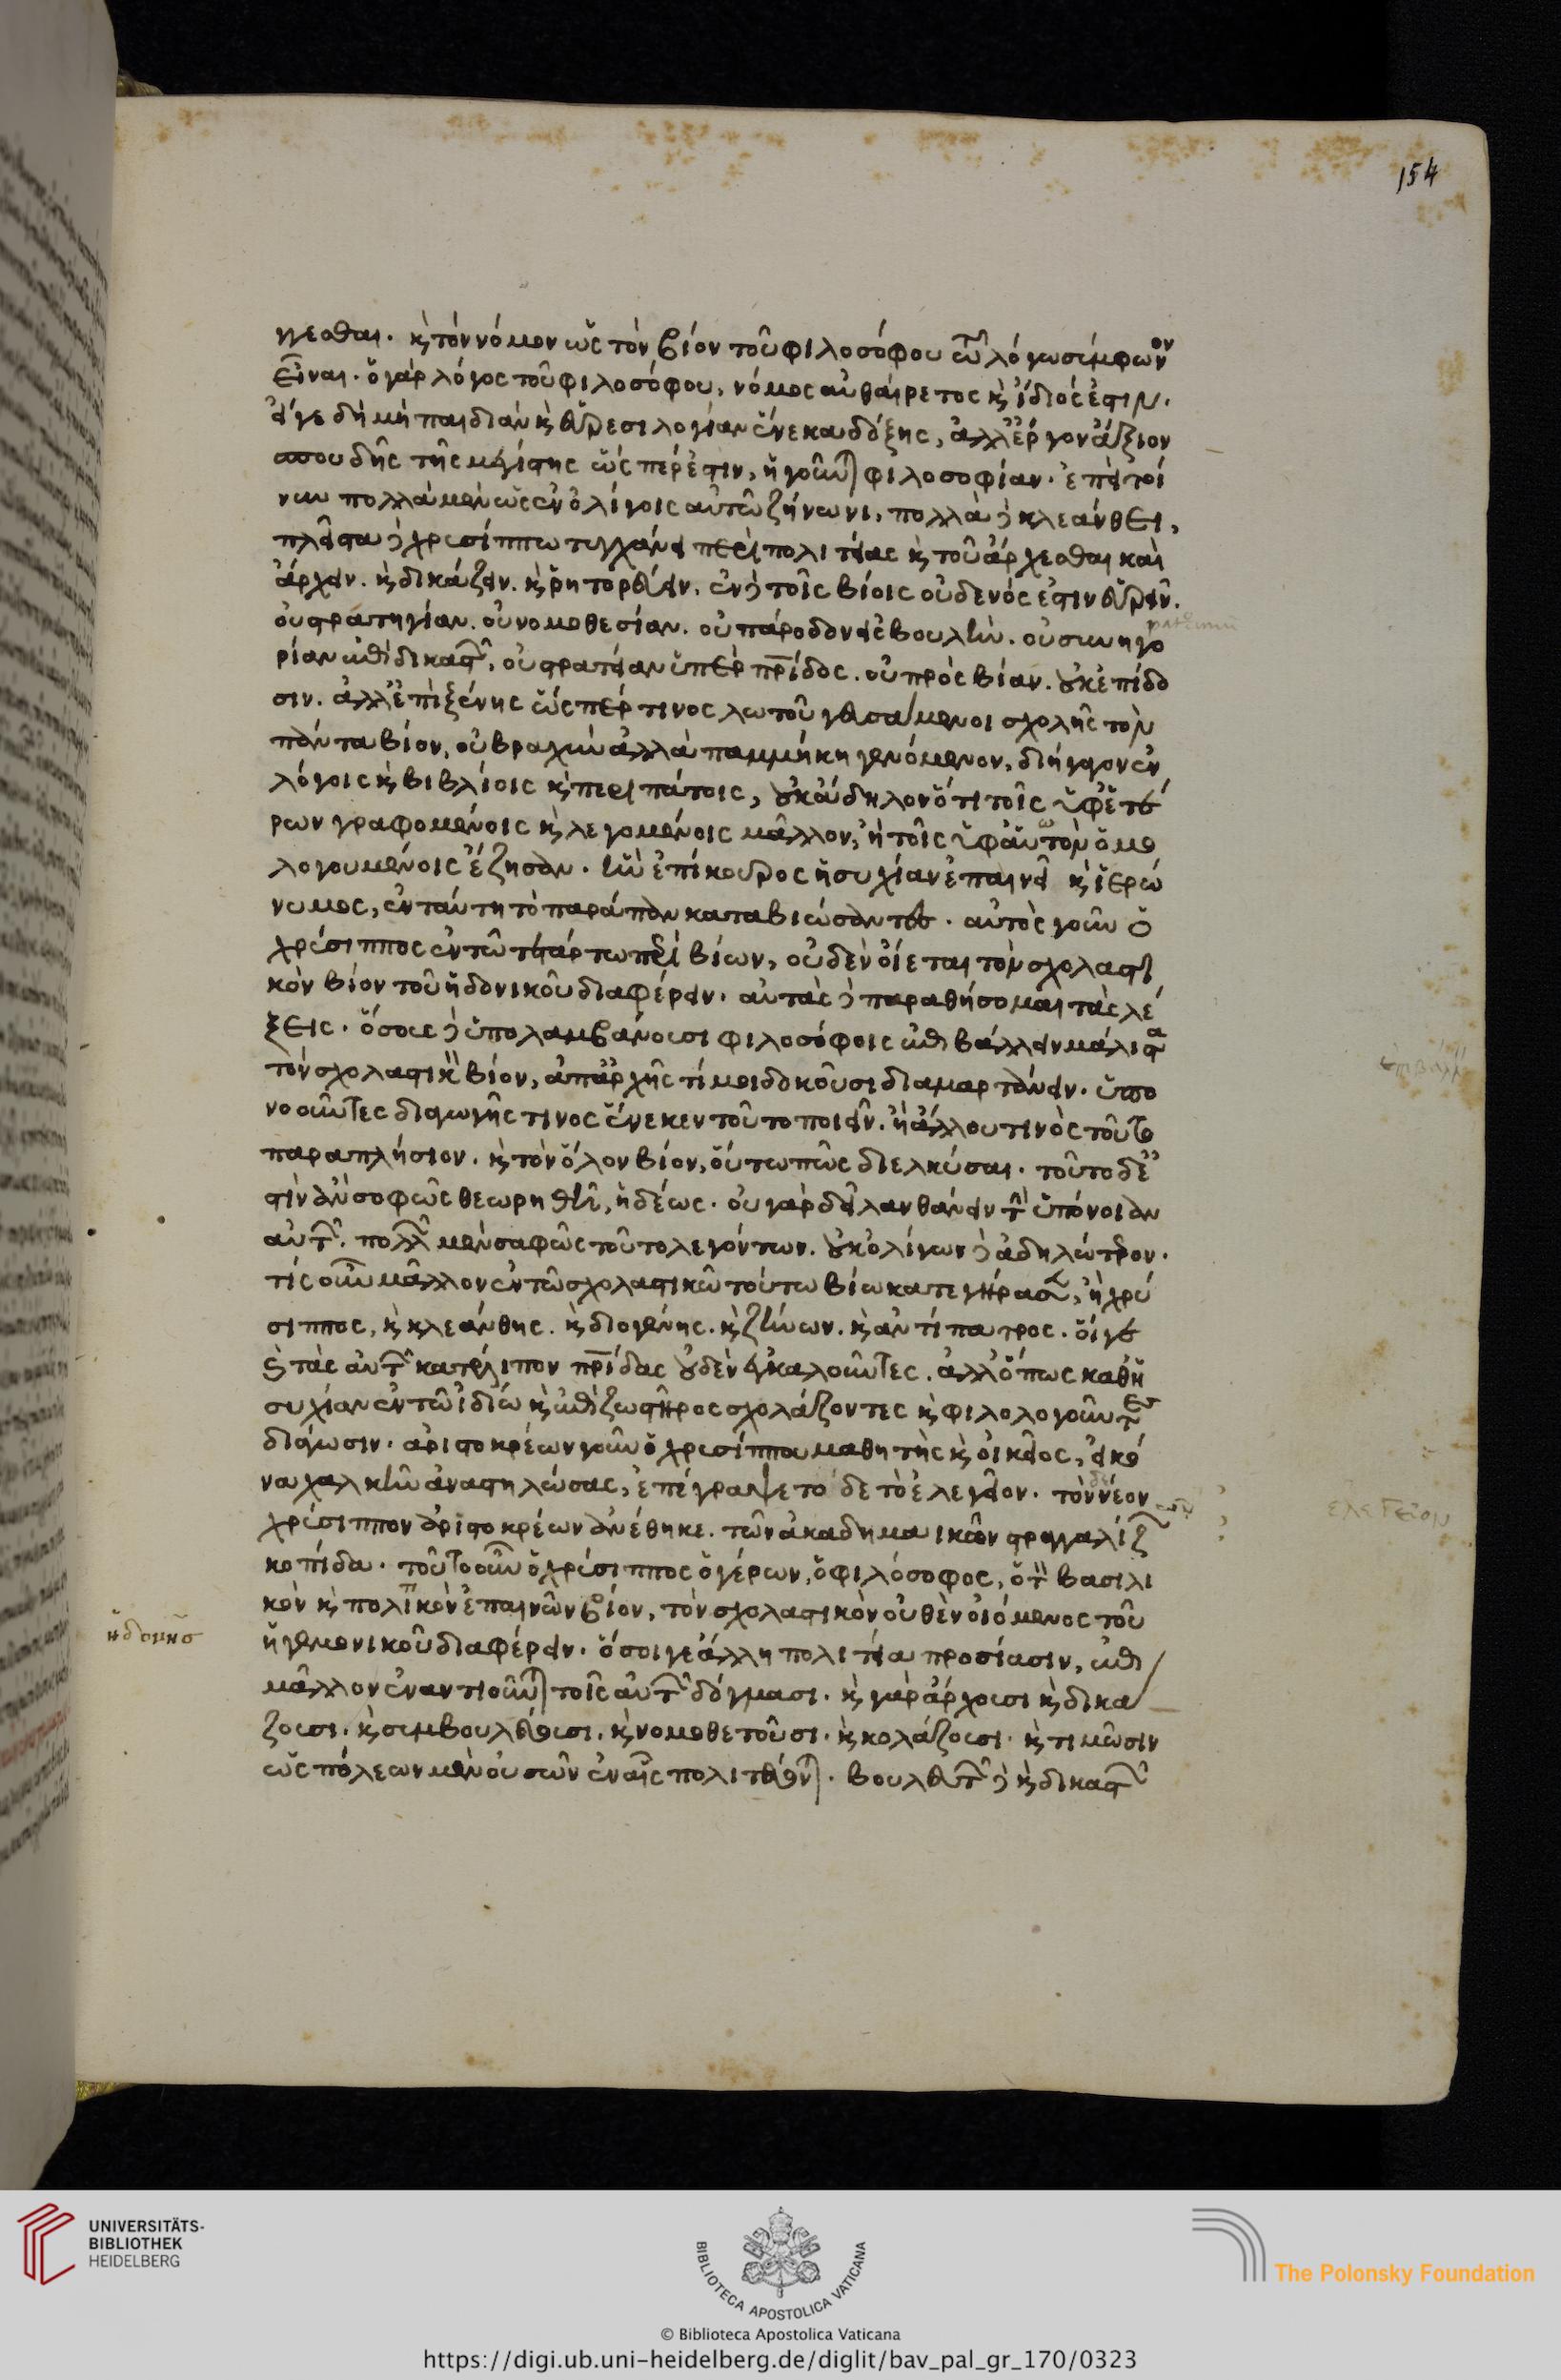 154
γεσθαι. κ̀ τὸν νόμον ὡς τὸν βίον τοῦ φιλοσόφου τῶ λόγω σύμφωνον
εἶναι. ὁ γὰρ λόγος τοῦ φιλοσόφου, νόμος αὐθαίρετος κ̀ ἴδιός ἐστιν.
εἴγε δὴ μὴ παιδιὰν κ̀ εὑρεσιλογίαν ἕνεκα δόξης, ἀλλ' ἔργον ἄξιον
σπουδῆς τῆς μεγίστης ὥσπερ ἐστιν, ἡγοῦνται φιλοσοφίαν. ἐπεὶ τοί
νυν πολλὰ μὲν ὡς ἐν ὀλίγοις αὐτῶ ζήνωνι, πολλὰ δὲ κλεάνθει,
πλεῖστα δὲ χρυσίππω τυγχάνει περὶ πολιτείας κ̀ τοῦ ἄρχεσθαι καὶ
ἄρχειν. κ̀ δικάζειν. κ̀ ῥητορεύειν. ἐν δὲ τοῖς βίοις οὐδενός ἐστιν εὑρεῖν.
οὐ στρατηγίαν. οὐ νομοθεσίαν. οὐ πάροδον εἰς βουλήν. οὐ συνηγο
ρίαν ἐπὶ δικαστῶν, οὐ στρατείαν ὑπὲρ πρίδος. οὐ πρὸς βίαν. οὐκ ἐπίδο
σιν. ἀλλ' ἐπὶ ξένης ὥσπερ τινος λωτοῦ γευσάμενοι σχολῆς τὸν
πάντα βίον, οὐ βραχὺν ἀλλὰ παμμήκη γενόμενον, διήγαγον ἐν
λόγοις κ̀ βιβλίοις κ̀ περιπάτοις, οὐκ ἄδηλον ὅτι τοῖς ὑφ' ἑτέ
ρων γραφομένοις κ̀ λεγομένοις μᾶλλον, ἢ τοῖς ὑφ' αὑτῶν ὁμο
λογουμένοις ἔζησαν. ἣν ἐπίκουρος ἡσυχίαν ἐπαινεῖ κ̀ ἱερώ
νυμος, ἐν ταύτη τὸ παράπαν καταβιώσαντες. αὐτὸς γοῦν ὁ
χρύσιππος ἐν τῶ τετάρτω περὶ βίων, οὐδὲν οἴεται τὸν σχολαστι
κὸν βίον τοῦ ἡδονικοῦ διαφέρειν. αὐτὰς δὲ παραθήσομαι τὰς λέ
ξεις. ὅσοις δὲ ὑπολαμβάνουσι φιλοσόφοις ἐπιβάλλειν μάλιστα
τὸν σχολαστικὸν βίον, ἀπαρχῆς τί μοι δοκοῦσι διαμαρτάνειν. ὑπο
νοοῦντες διαγωγῆς τινος ἕνεκεν τοῦτο ποιεῖν. ἢ ἄλλου τινὸς τούτω
παραπλήσιον. κ̀ τὸν ὅλον βίον, οὕτω πῶς διελκύσαι. τοῦτο δέ
στιν ἂν σοφῶς θεωρηθῆ, ἡδέως. οὐ γὰρ δεῖ λανθάνειν τὴν ὑπόνοιαν
αὐτῶν. πολλῶν μὲν σαφῶς τοῦτο λεγόντων. οὐκ ὀλίγων δὲ ἀδηλότερον.
τίς οὖν μᾶλλον ἐν τῶ σχολαστικῶ τούτω βίω κατεγήρασεν, ἢ χρύ
σιππος, κ̀ κλεάνθης. κ̀ διογένης. κ̀ ζήνων. κ̀ ἀντίπατρος. οἵ γε
κ̀ τὰς αὐτῶν κατέλιπον πρίδας οὐδὲν ἐγκαλοῦντες. ἀλλ' ὅπως καθ' ἡ
συχίαν ἐν τῶ ἰδίω κ̀ ἐπὶ ζωστῆρος σχολάζοντες κ̀ φιλολογοῦντες
διάγωσιν. ἀριστοκρέων γοῦν ὁ χρυσίππου μαθητὴς κ̀ οἰκεῖος, εἰκό
να χαλκῆν ἀναστηλώσας, ἐπέγραψε τόδε τὸ ἐλεγεῖον. τὸν νέον
χρύσιππον ἀριστοκρέων ἀνέθηκε. τῶν ἀκαδημαικῶν στραγγαλίδων
κοπίδα. τοῦτο οὖν ὁ χρύσιππος ὁ γέρων, ὁ φιλόσοφος, ὁ τὸν βασιλι
κὸν κ̀ πολιτικὸν ἐπαινῶν βίον, τὸν σχολαστικὸν οὐθὲν οἰόμενος τοῦ
ἡδονῆς
ἡγεμονικοῦ διαφέρειν. ὅσοι γε ἄλλη πολιτεία προσίασιν, ἐπὶ
μᾶλλον ἐναντιοῦνται τοῖς αὐτῶν δόγμασι. κ̀ γὰρ ἄρχουσι κ̀ δικά
ζουσι. κ̀ συμβουλεύουσι. κ̀ νομοθετοῦσι. κ̀ κολάζουσι. κ̀ τιμῶσιν
ὡς πόλεων μὲν οὐσῶν ἐν αἷς πολιτεύονται. βουλευτῶν δὲ κ̀ δικαστῶν
ελεγεῖον
UNIVERSITÄTS-
BIBLIOTHEK
HEIDELBERG
BIBLIOTECA APOSTOLICA VATICANA
The Polonsky Foundation
© Biblioteca Apostolica Vaticana
https://digi.ub.uni-heidelberg.de/diglit/bav_pal_gr_170/0323